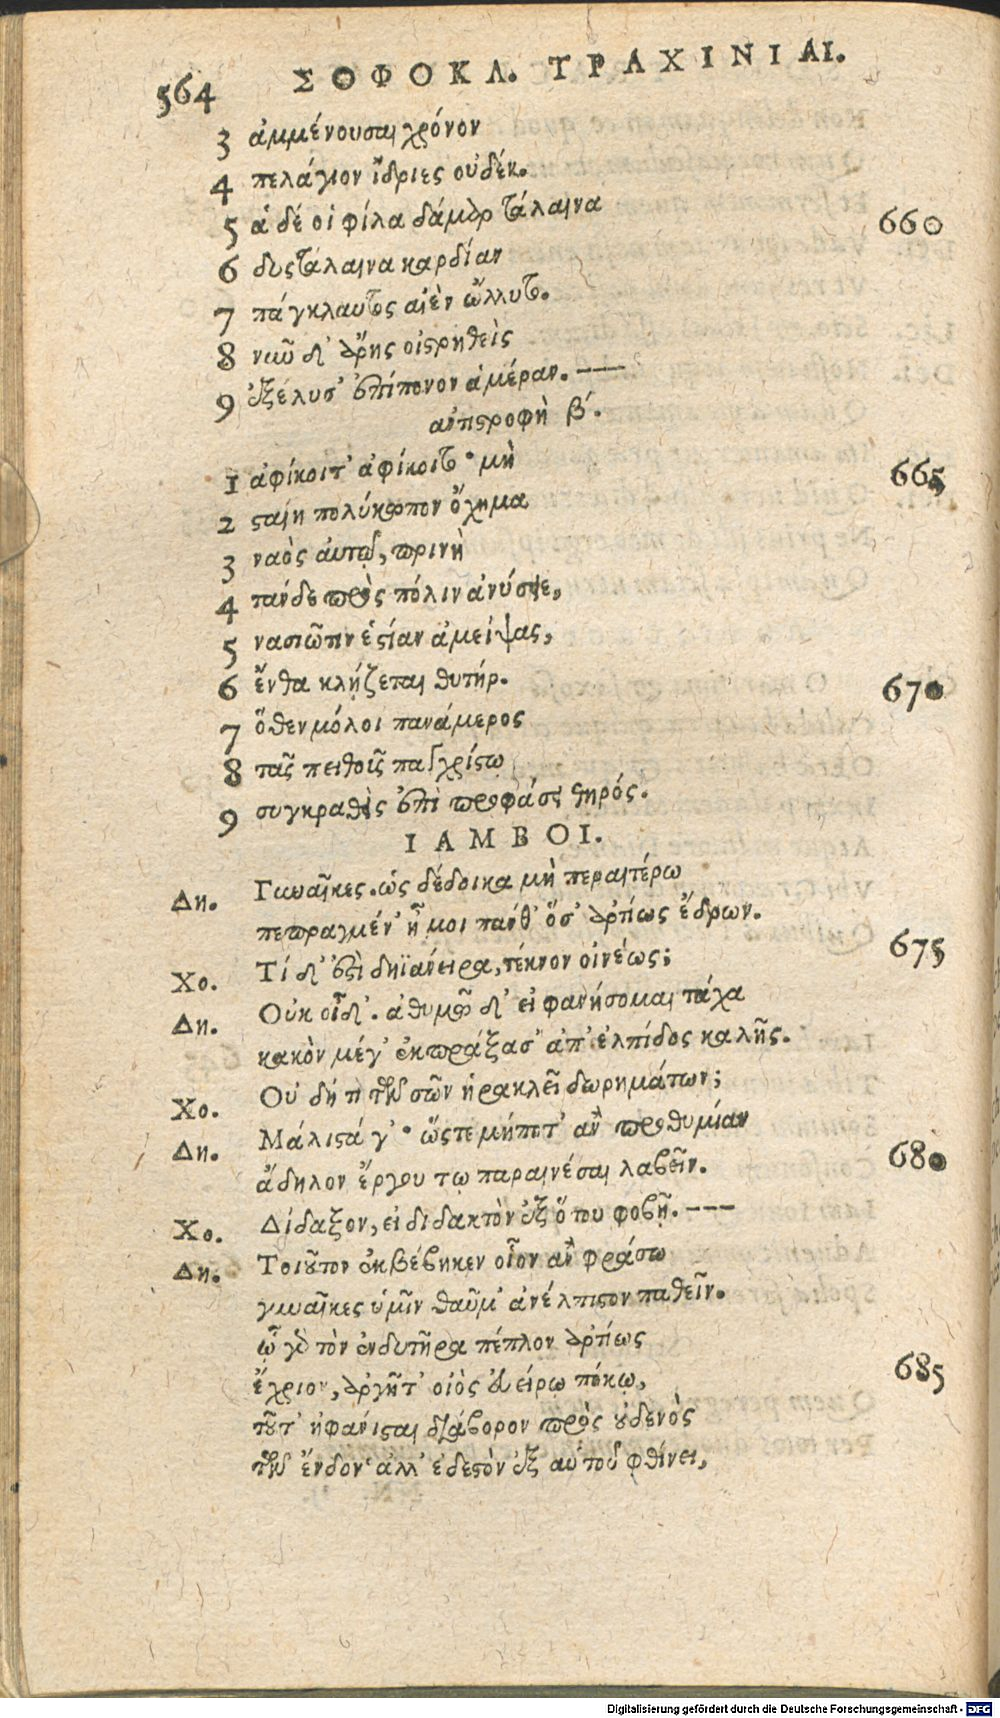 564 ΣΟΦΟΚΛ. ΤΡΑΧΙΝΙΑΙ.
3 ἀμμένουσαι χρόνον
4 πελάγιον ἴδριες οὐδέν.
5 ἁ δέ οἱ φίλα δάμαρ τάλαινα 660
6 δυςτάλαινα καρδίαν
7 πάγκλαυτος αἰὲν ὤλλυτο.
8 νῦν δ' ἄρης οἰςρηθεὶς
9 ἐξέλυσ' ἐπίπονον ἁμέραν. ---
ἀντιςροφὴ β´.
1 ἀφίκοιτ' ἀφίκοιτο· μὴ 665
2 ςαίη πολύκωπον ὄχημα
3 ναὸς αὐτῷ, πρινὴ
4 τάνδε πρὸς πόλιν ἀνύσειε,
5 νασιῶτιν ἑςίαν ἀμείψας,
6 ἔνθα κλῄζεται θυτήρ. 670
7 ὅθεν μόλοι πανάμερος
8 τᾶς πειθοῦς παγχρίςῳ
9 συγκραθεὶς ἐπὶ προφάσει θηρός.
ΙΑΜΒΟΙ.
Δη. Γυναῖκες. ὡς δέδοικα μὴ περαιτέρω
πεπραγμέν' ᾖ μοι πάνθ' ὅσ' ἀρτίως ἔδρων.
Χο. Τί δ' ἐςὶ δηϊάνειρα, τέκνον οἰνέως; 675
Δη. Οὐκ οἶδ'. ἀθυμῶ δ' εἰ φανήσομαι τάχα
κακὸν μέγ' ἐκπράξασ' ἀπ' ἐλπίδος καλῆς.
Χο. Οὐ δή τι τῶν σῶν ἡρακλεῖ δωρημάτων;
Δη. Μάλιςά γ'· ὥςτε μήποτ' ἂν προθυμίαν
ἄδηλον ἔργου τῳ παραινέσαι λαβεῖν. 680
Χο. Δίδαξον, εἰ διδακτὸν ἐξ ὅτου φοβῇ. ---
Δη. Τοιοῦτον ἐκβέβηκεν οἷον ἂν φράσω
γυναῖκες ὑμῖν θαῦμ' ἀνέλπιςον παθεῖν.
ᾧ γὰρ τὸν ἐνδυτῆρα πέπλον ἀρτίως
ἔχριον, ἀργῆτ' οἰὸς εὐείρῳ πόκῳ, 685
τοῦτ' ἠφάνιςαι διάβορον πρὸς οὐδενὸς
τῶν ἔνδον· ἀλλ' ἐδεςὸν ἐξ αὑτοῦ φθίνει,
Digitalisierung gefördert durch die Deutsche Forschungsgemeinschaft - DFG